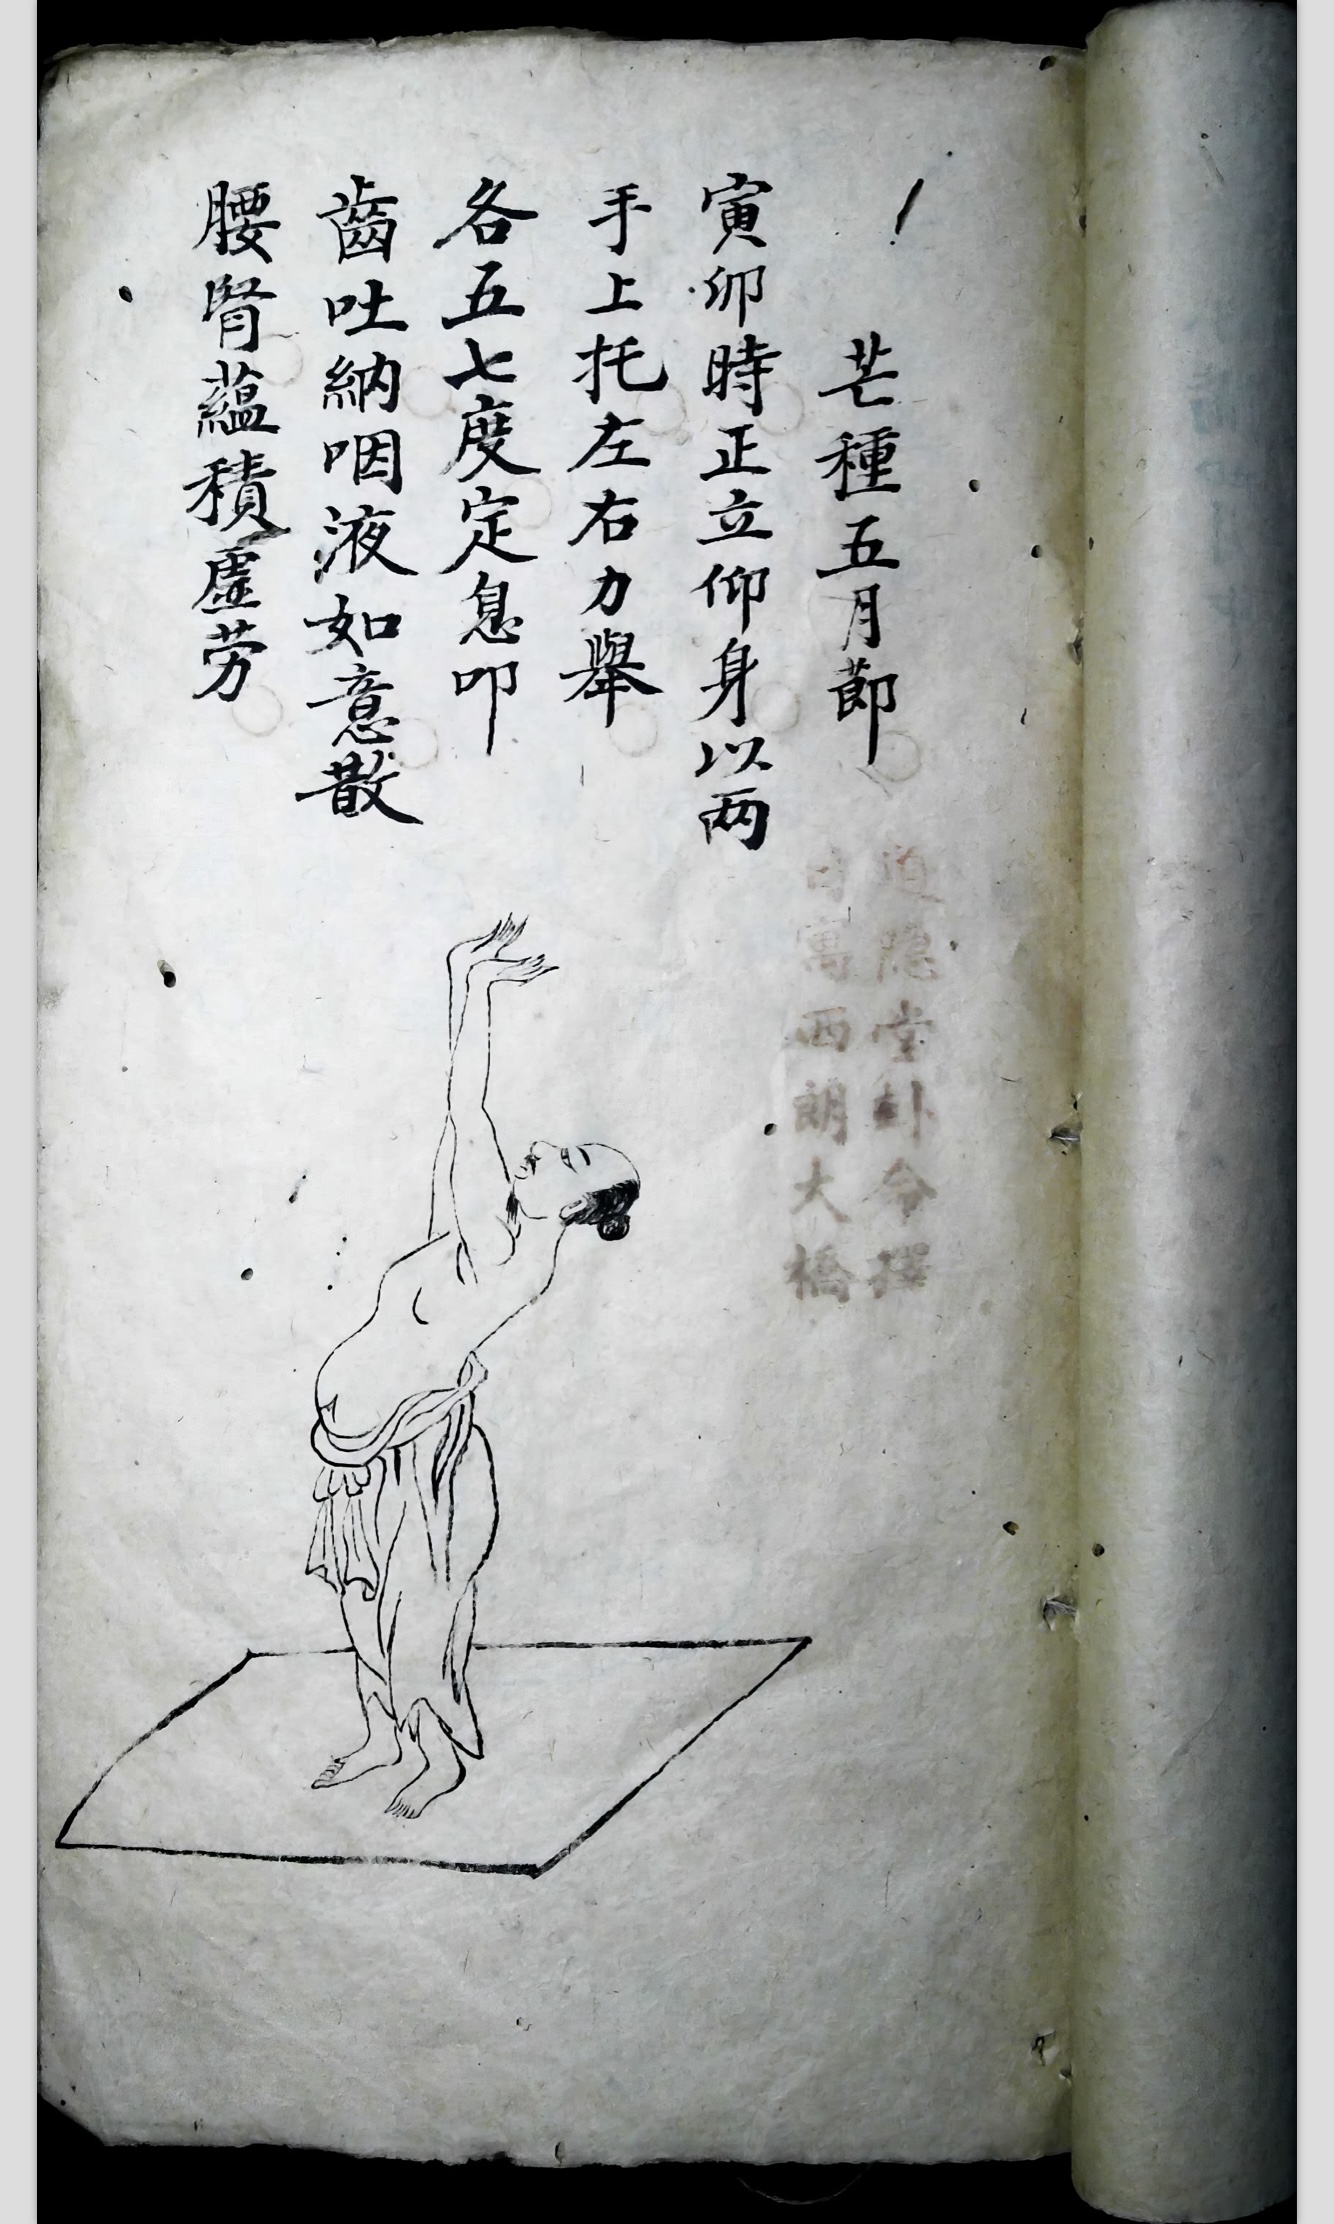 芒種五月節
寅卯時正立仰身以两
手上托左右力舉
各五七度定息叩
齒吐納咽液如意散
腰腎蘊積虛劳
堂卦令擇
寓西朗大橋